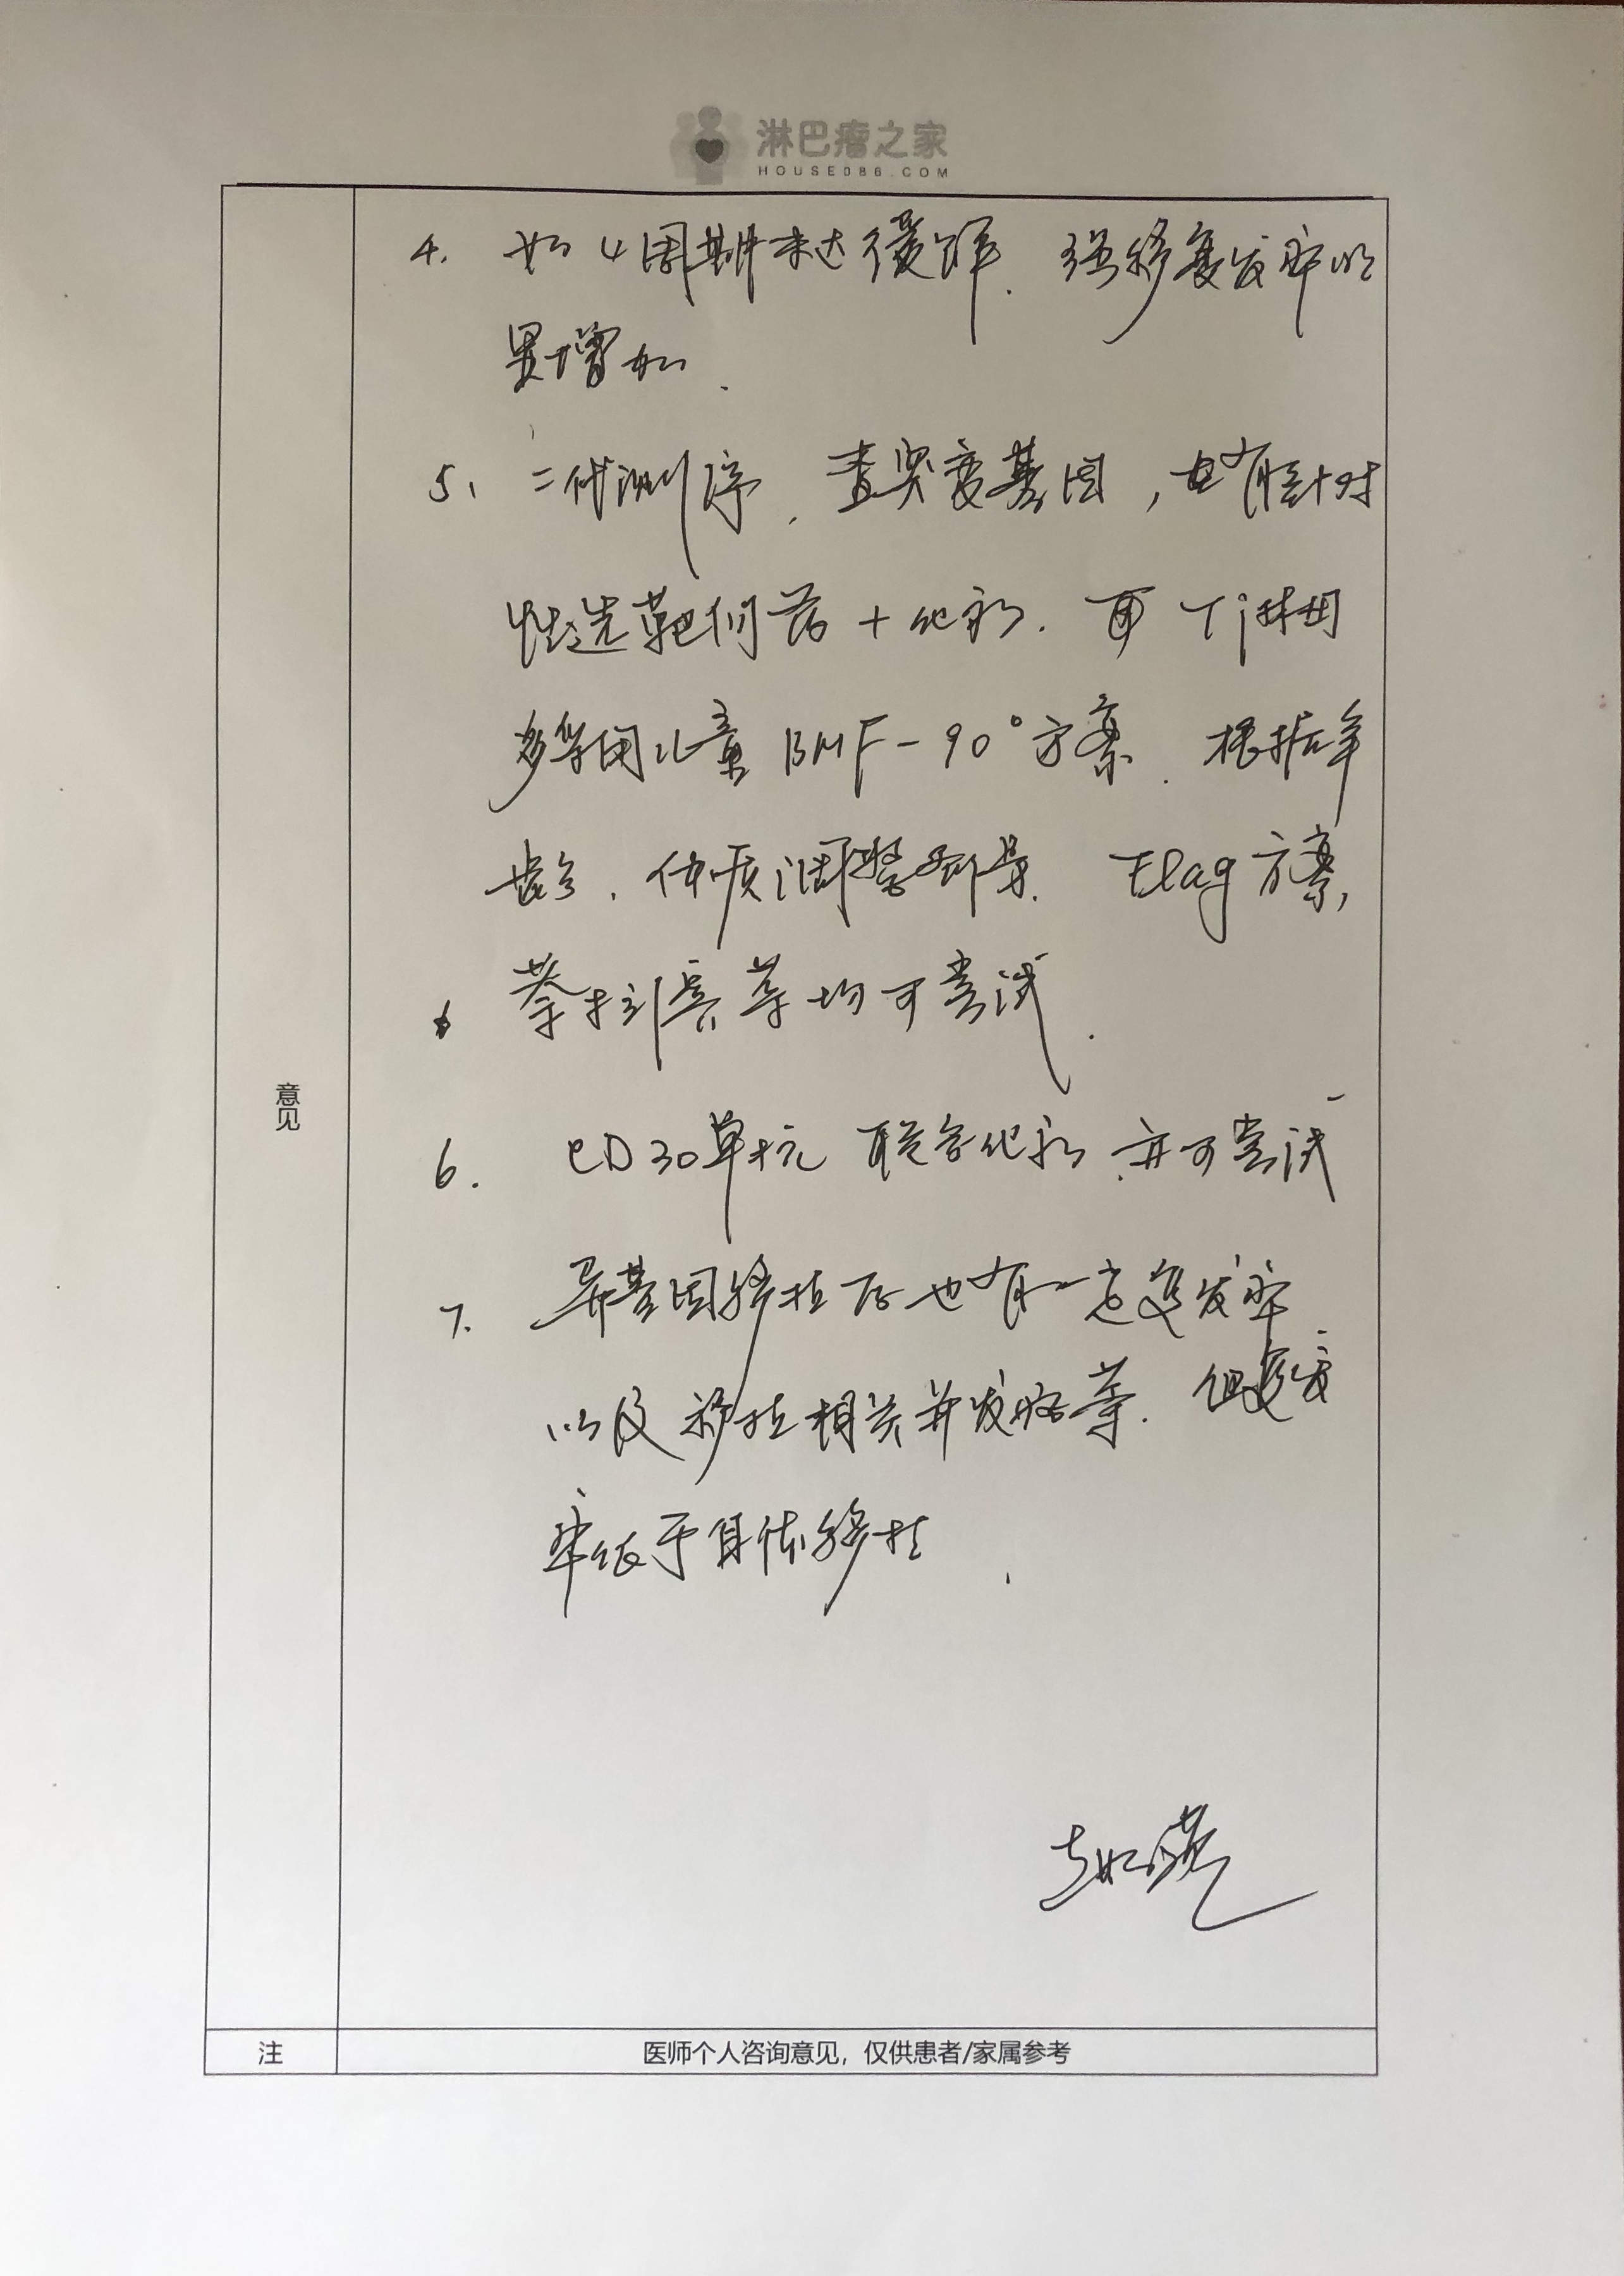 淋巴瘤之家
HOUSE086.COM
4. 如4周期未达缓解. 强移复发率明
显增加.
5、二代测序. 查突变基因,
性选靶向药+化疗. 而T淋母
多常用儿童BMF-90°方案. 根据年
龄. 体质调整剂量. Flag方案,
等均可尝试.
6. CD30单抗 联合化疗 亦可尝试
7. 异基因移植后也有一定复发率
以及移植相关并发症等. 但复发
率低于自体移植.
意见
注
医师个人咨询意见，仅供患者/家属参考